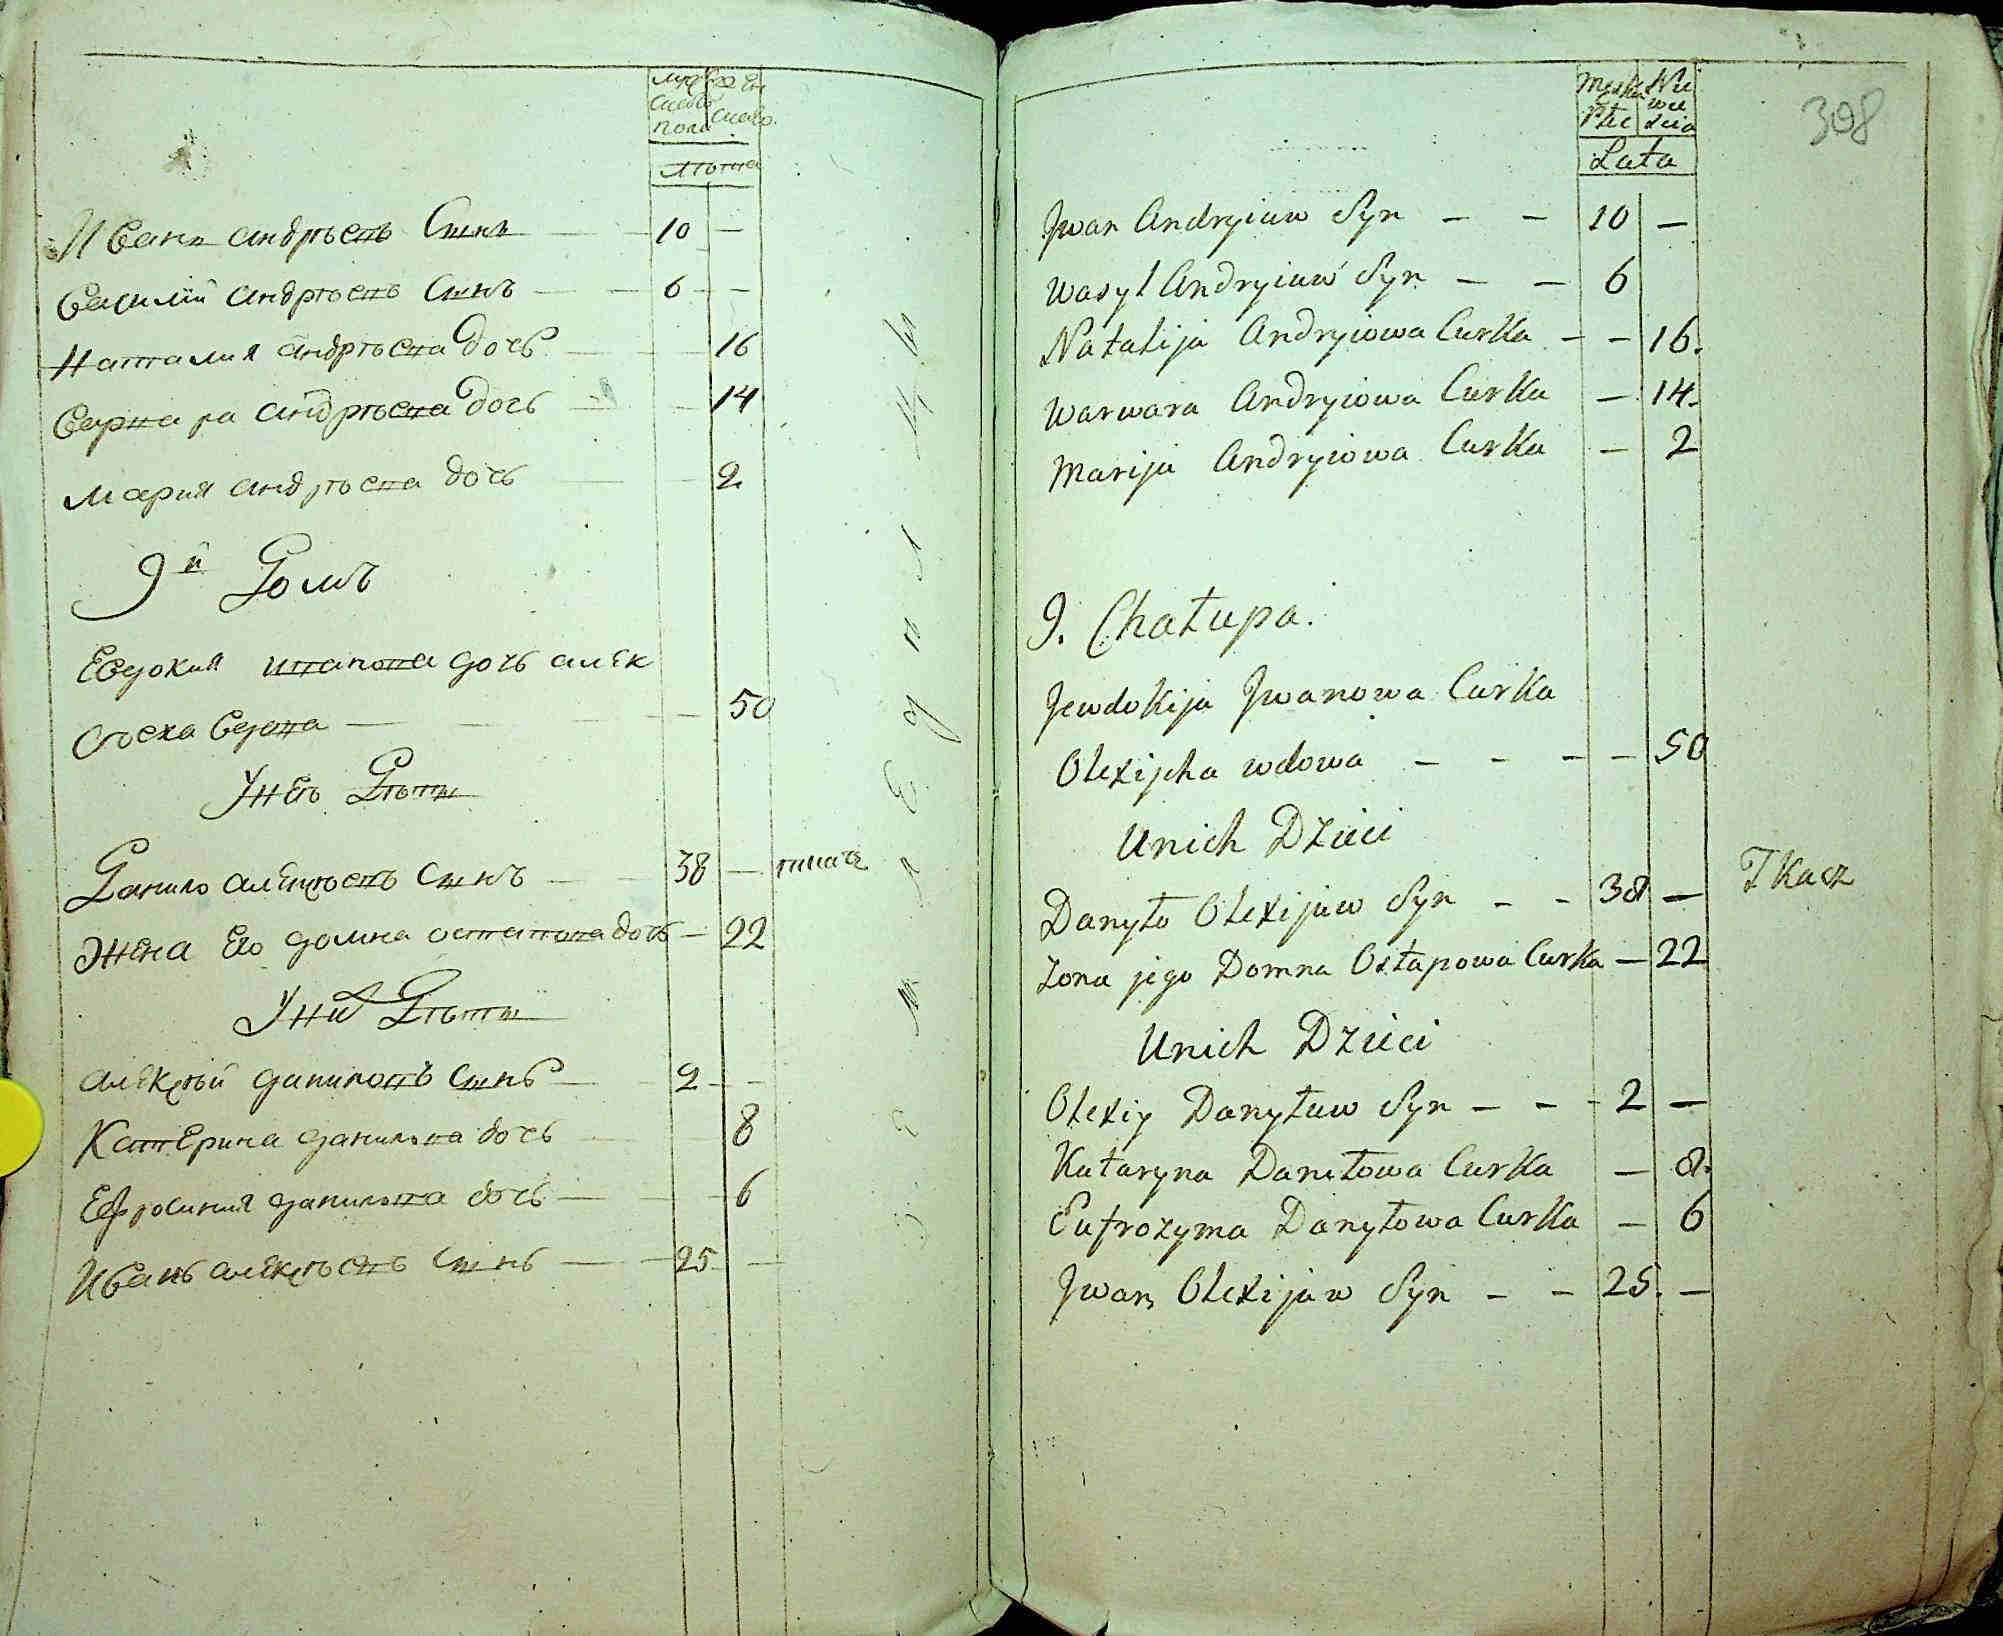 Лѣта
Иванъ Андрѣевъ Сынъ — 10 —
Василій Андрѣевъ Сынъ — 6 —
Наталия Андрѣева Дочь — 16
Варвара Андрѣева Дочь — 14
Мария Андрѣева дочь — 2
9й Домъ
Евдокия Иванова дочь Алек
сѣеха вдова — 50
У неѣ Дѣти
Данило Алексѣевъ Сынъ — 38 — ткачь
Жена Его Домна Остапова дочь — 22
У них Дѣти
Алексѣй Даниловъ Сынъ — 2 —
Катерина Данилова дочь — 8
Ефросиния Данилова дочь — 6
Иванъ Алексѣевъ Сынъ — 25 —
308
Męska Płec
Niewieścia
Lata
Jwan Andryiuw Syn — — 10 —
Wasyl Andryiuw Syn — — 6
Natalija Andryiowa Curka — — 16.
Warwara Andryiowa Curka — 14.
Marija Andryiowa Curka — 2
9. Chałupa.
Jewdokija Jwanowa Curka
Olexijcha wdowa — — — — 50
Unich Dzieci
Danyło Olexijuw Syn — — 38 — Tkacz
Zona jego Domna Ostapowa Curka — 22
Unich Dzieci
Olexiy Danyłuw Syn — — - 2 —
Kataryna Daniłowa Curka — 8.
Eufrozyma Danyłowa Curka — 6
Jwan Olexijuw Syn — — 25. —